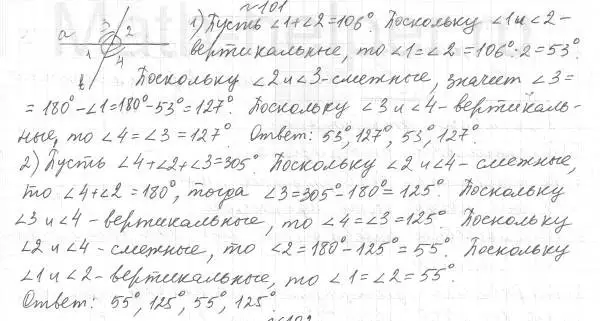 №101
a 3 2 1) Пусть ∠1+∠2=106°. Поскольку ∠1 и ∠2 -
1 4 вертикальные, то ∠1=∠2=106°:2=53°.
b Поскольку ∠2 и ∠3 - смежные, значит ∠3=
=180°-∠1=180°-53°=127°. Поскольку ∠3 и ∠4 - вертикаль-
ные, то ∠4=∠3=127°. Ответ: 53°, 127°, 53°, 127°.
2) Пусть ∠4+∠2+∠3=305°. Поскольку ∠2 и ∠4 - смежные,
то ∠4+∠2=180°, тогда ∠3=305°-180°=125°. Поскольку
∠3 и ∠4 - вертикальные, то ∠4=∠3=125°. Поскольку
∠2 и ∠4 - смежные, то ∠2=180°-125°=55°. Поскольку
∠1 и ∠2 - вертикальные, то ∠1=∠2=55°.
Ответ: 55°, 125°, 55°, 125°.